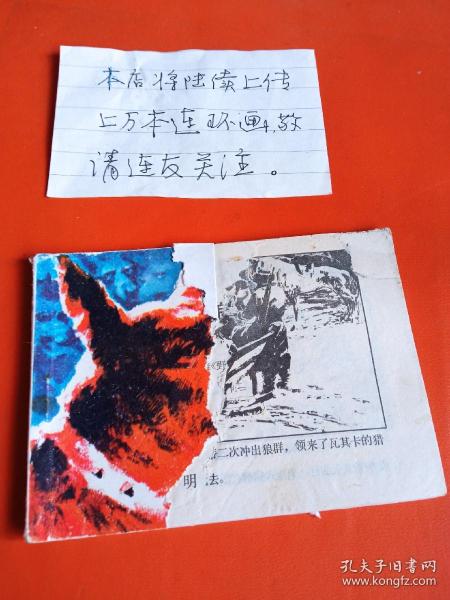 本店将陆续上传
上万本连环画，敬
请连友关注。
野
二次冲出狼群，领来了瓦其卡的猎
明 法。
孔夫子旧书网
www.kongfz.com